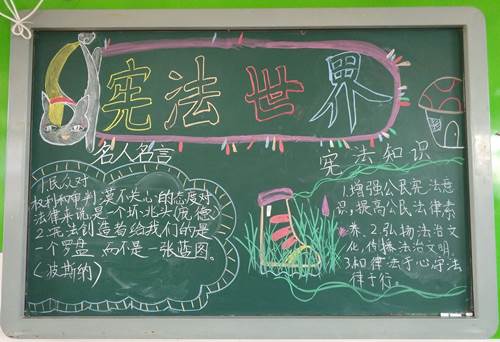 宪法世界
名人名言
1.民众对
权利和审判漠不关心的态度对
法律来说是一个坏兆头(庞德)
2.宪法创造者给我们的是
一个罗盘而不是一张蓝图。
(波斯纳)
宪法知识
1.增强公民宪法意
识,提高公民法律素
养.2.弘扬法治文
化,传播法治文明.
3.和律法于心守法
律于行.